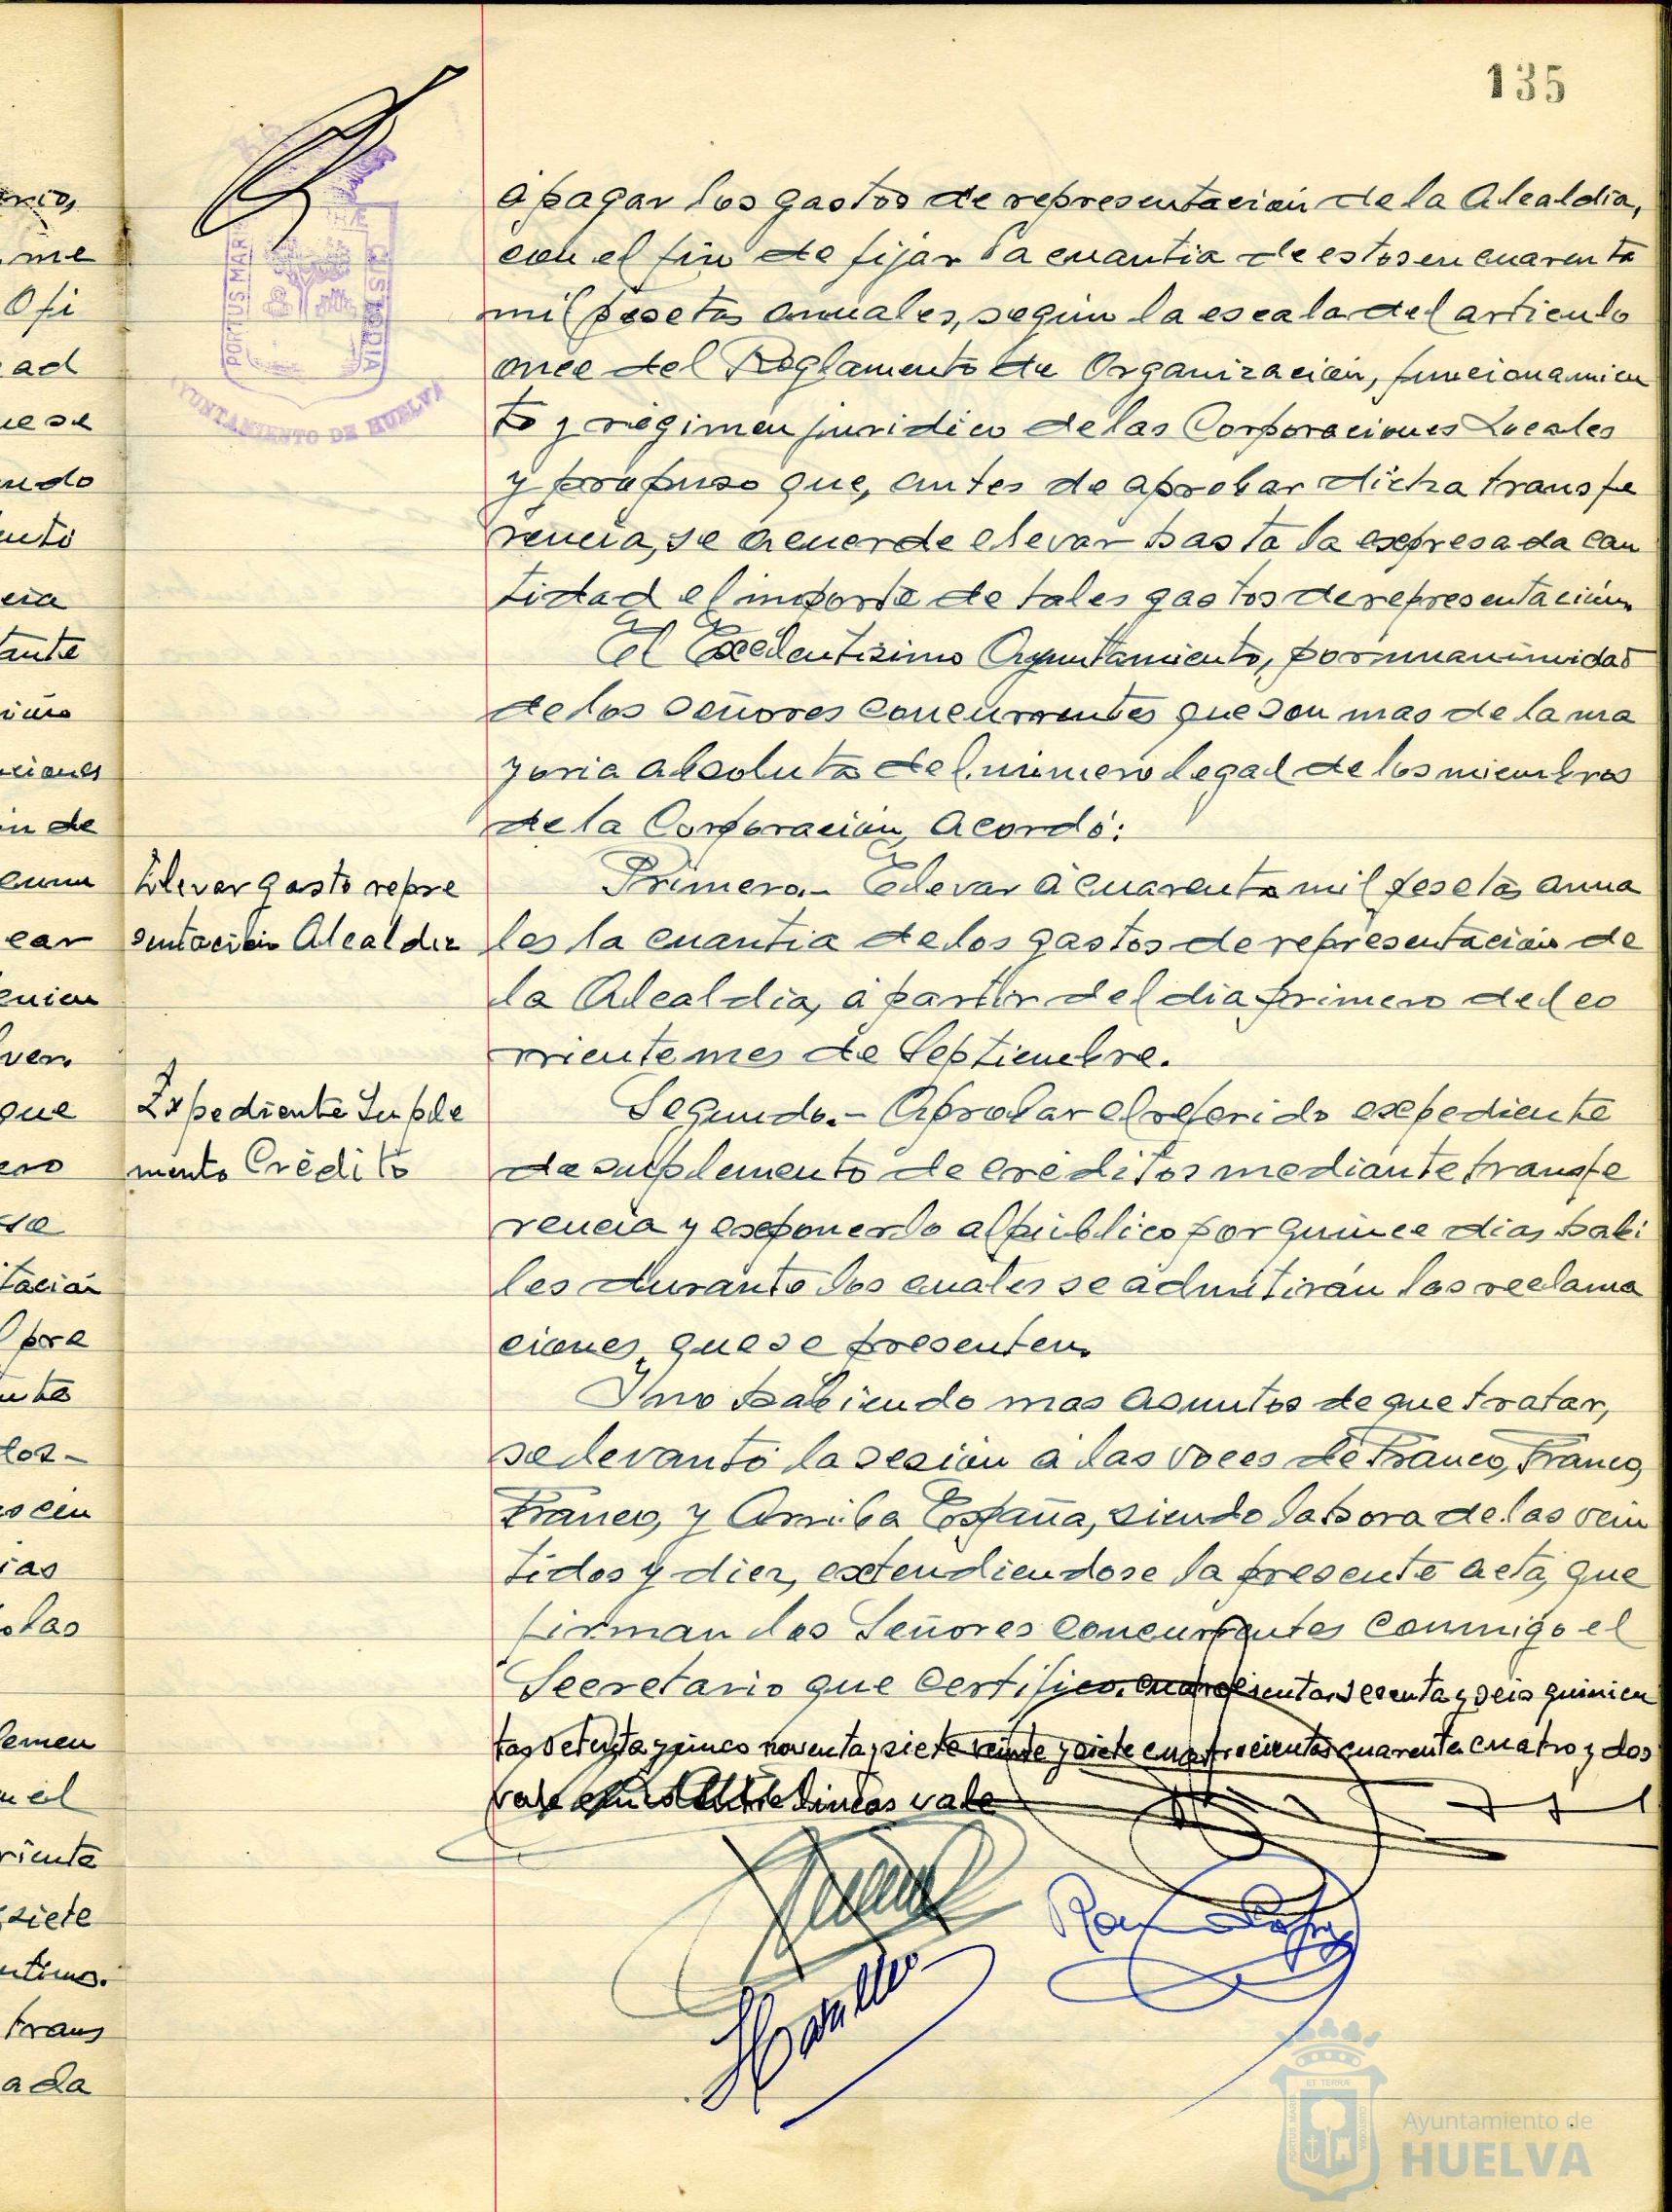 135
á pagar los gastos de representación de la Alcaldía,
con el fin de fijar la cuantia de estos en cuarenta
mil pesetas anuales, según la escala del articulo
once del Reglamento de Organización, funcionamien
to y régimen juridico de las Corporaciones Locales
y propuso que, antes de aprobar dicha transfe
rencia, se acuerde elevar hasta la expresada can
tidad el importe de tales gastos de representación.
El Excelentisimo Ayuntamiento, por unanimidad
de los señores concurrentes que son mas de la ma
yoria absoluta del número legal de los miembros
de la Corporación, acordó:
Elevar gasto repre
sentación Alcaldia
Primero.- Elevar á cuarenta mil pesetas anua
les la cuantia de los gastos de representación de
la Alcaldia, á partir del dia primero del co
rriente mes de Septiembre.
Expediente Suple
mento Crédito
Segundo.- Aprobar el referido expediente
de suplemento de créditos mediante transfe
rencia y exponerlo al público por quince dias habi
les durante los cuales se admitirán las reclama
ciones que se presenten.
Y no habiendo mas asuntos de que tratar,
se levantó la sesión á las voces de Franco, Franco,
Franco, y Arriba España, siendo la hora de las vein
tidos y diez, extendiendose la presente acta, que
firman los Señores concurrentes conmigo el
Secretario que certifico. cuatrocientas sesenta y seis quinien
tas setenta y cinco noventa y siete veinte y siete cuatrocientas cuarenta cuatro y dos
vale entre lineas vale
PORTUS MARIS
CUSTODIA
AYUNTAMIENTO DE HUELVA
Ayuntamiento de
HUELVA